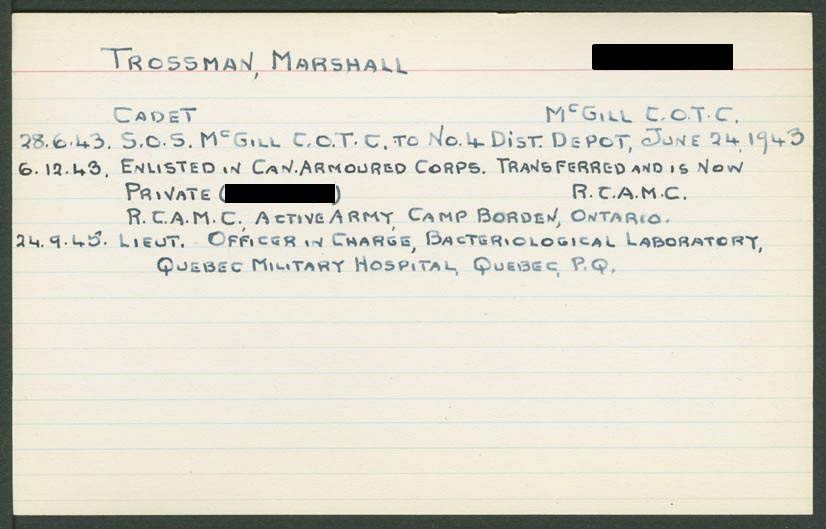 TROSSMAN, MARSHALL
CADET McGILL C.O.T.C.
28.6.43. S.O.S. McGILL C.O.T.C. TO No.4 DIST. DEPOT, JUNE 24, 1943
6.12.43. ENLISTED IN CAN. ARMOURED CORPS. TRANSFERRED AND IS NOW
PRIVATE ( ) R.C.A.M.C.
R.C.A.M.C., ACTIVE ARMY, CAMP BORDEN, ONTARIO.
24.9.45. LIEUT. - OFFICER IN CHARGE, BACTERIOLOGICAL LABORATORY,
QUEBEC MILITARY HOSPITAL, QUEBEC, P.Q.